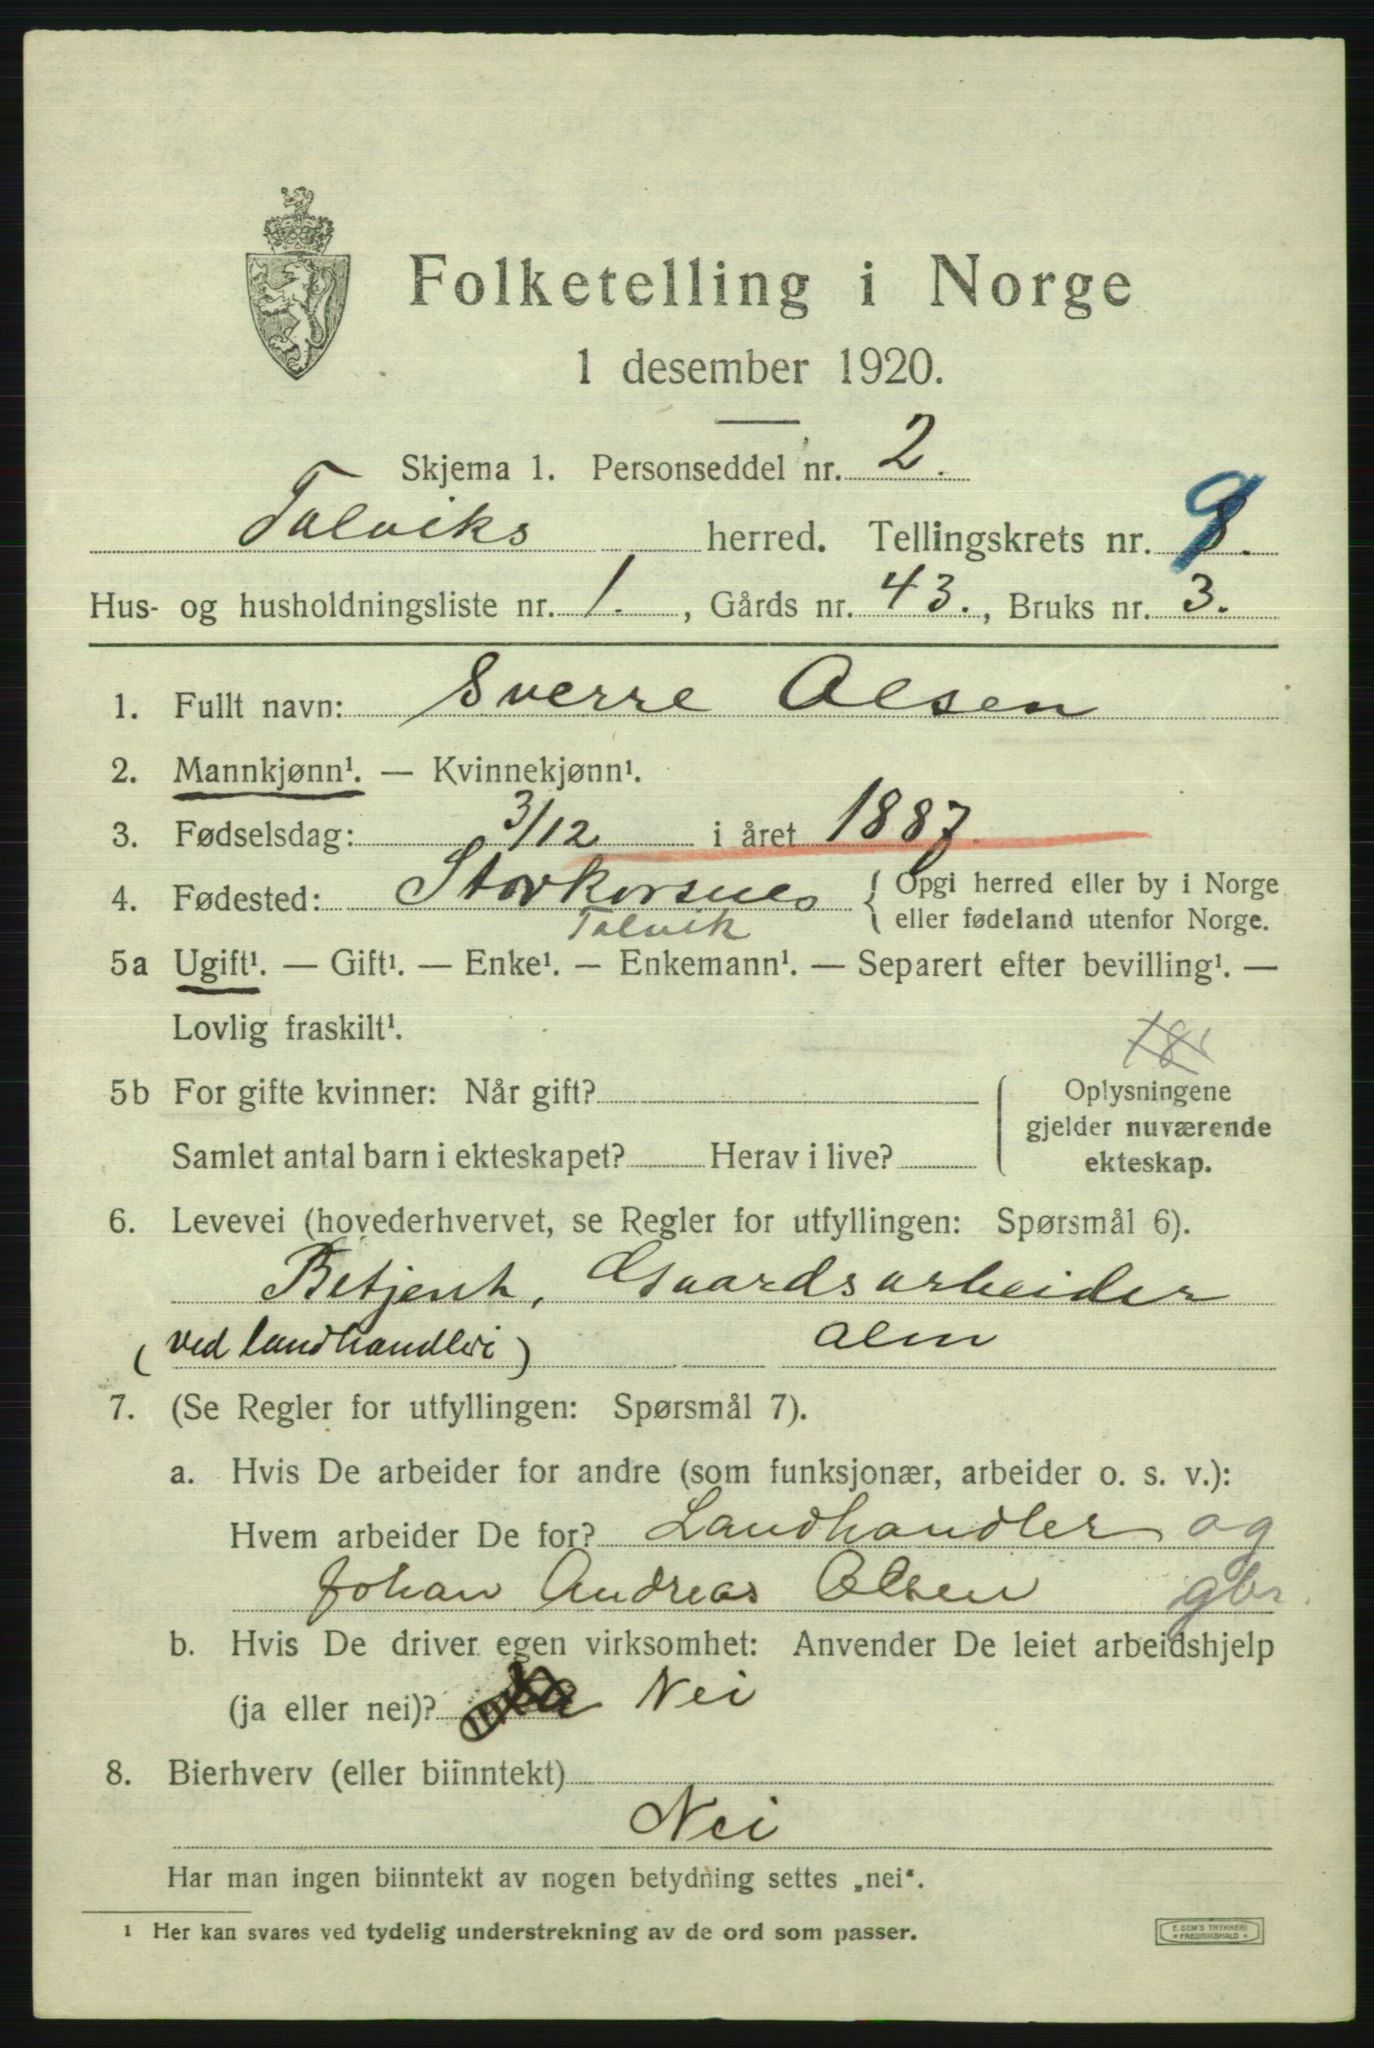 Folketelling i Norge
1 desember 1920.
Skjema 1. Personseddel nr. 2.
Talviks herred. Tellingskrets nr. 9
Hus- og husholdningsliste nr. 1., Gårds nr. 43., Bruks nr. 3.
1. Fullt navn: Sverre Olsen
2. Mannkjønn¹. — Kvinnekjønn¹.
3. Fødselsdag: 3/12 i året 1887.
4. Fødested: Storkorsnes { Opgi herred eller by i Norge
eller fødeland utenfor Norge.
Talvik
5a Ugift¹. — Gift¹. — Enke¹. — Enkemann¹. — Separert efter bevilling¹. —
Lovlig fraskilt¹.
5b For gifte kvinner: Når gift? Oplysningene
gjelder nuværende
Samlet antal barn i ekteskapet? Herav i live? ekteskap.
6. Levevei (hovederhvervet, se Regler for utfyllingen: Spørsmål 6).
Betjent, Gaardsarbeider
(ved landhandleri) alm
7. (Se Regler for utfyllingen: Spørsmål 7).
a. Hvis De arbeider for andre (som funksjonær, arbeider o. s. v.):
Hvem arbeider De for? Landhandler og
Johan Andreas Olsen gbr.
b. Hvis De driver egen virksomhet: Anvender De leiet arbeidshjelp
(ja eller nei)? Nei
8. Bierhverv (eller biinntekt)
Nei
Har man ingen biinntekt av nogen betydning settes „nei“.
¹ Her kan svares ved tydelig understrekning av de ord som passer.
E. SEM'S TRYKKERI
FREDRIKSHALD